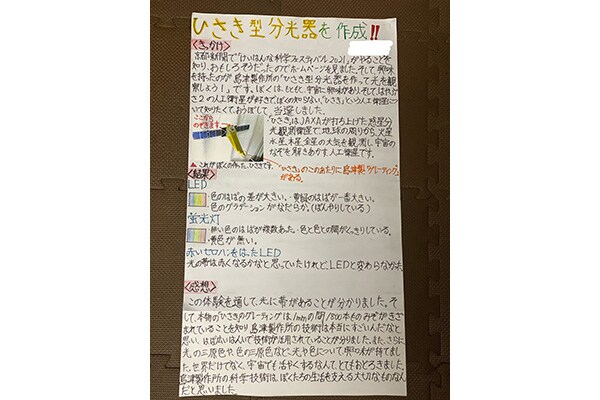 ひさき型分光器を作成!!
<きっかけ>
京都新聞で「けいはんな科学フェスティバル2021」がやることを
知り、おもしろそうだったのでホームページを見ました。そして、興味
を持ったのが「島津製作所の「ひさき型分光器を作って光を観
察しよう!」です。ぼくは、もともと、宇宙に興味があり、そして、はやぶ
さ2の人工衛星が好きで、ぼくの知らない「ひさき」という人工衛星につ
いて知りたくて、おうぼして、当選しました。
ここから
のぞきます。
「ひさき」はJAXAが打ち上げた惑星分
光観測衛星で、地球の周りから、火星
水星、木星、金星の大気を観測し、宇宙の
なぞを解きあかす、人工衛星です。
▲これがぼくの作った、ひさきです。
「ひさき」のこのあたりに島津製「グレーティング」
がある。
<結果>
LED
・色のはばの差が大きい。・黄緑のはばが一番大きい。
・色のグラデーションがなだらか。(ぼんやりしている)
蛍光灯
・細い色のはばが複数あった・色と色との間がくっきりしている。
・黄色が無い。
赤いセロハンをはったLED
光の帯は赤くなるかなと思っていたけれど、LEDと変わらなかった
<感想>
この体験を通して、光に帯があることが分かりました。そ
して、本物の「ひさき」のグレーティングは、1mmの間に1800本ものみぞがきざ
まれていることを知り、島津製作所の技術は本当にすごいんだなと
思い、はば広いはんいで技術が活用されていることが分りました。また、さらに
光の三原色や、色の三原色など、光や色について興味が持てまし
た。世界だけでなく、宇宙でも活やくするなんて、とてもおどろきました。
島津製作所の科学技術は、ぼくたちの生活を支える大切なものなん
だと思いました。